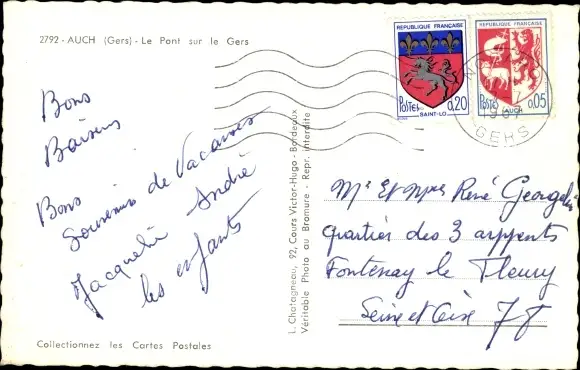 2792 - AUCH (Gers) - Le Pont sur le Gers
REPUBLIQUE FRANÇAISE
Postes 0,20
SAINT-LO
REPUBLIQUE FRANÇAISE
Postes 0,05
AUCH
GERS
Bons
Baisers
Bons
Souvenirs de Vacances
Jacqueline André
les enfants
I. Chatagneau, 92, Cours Victor-Hugo - Bordeaux
Véritable Photo au Bromure - Repr. interdite
Mr et Mme René Georgelin
quartier des 3 arpents
Fontenay le Fleury
Seine et Oise
Collectionnez les Cartes Postales